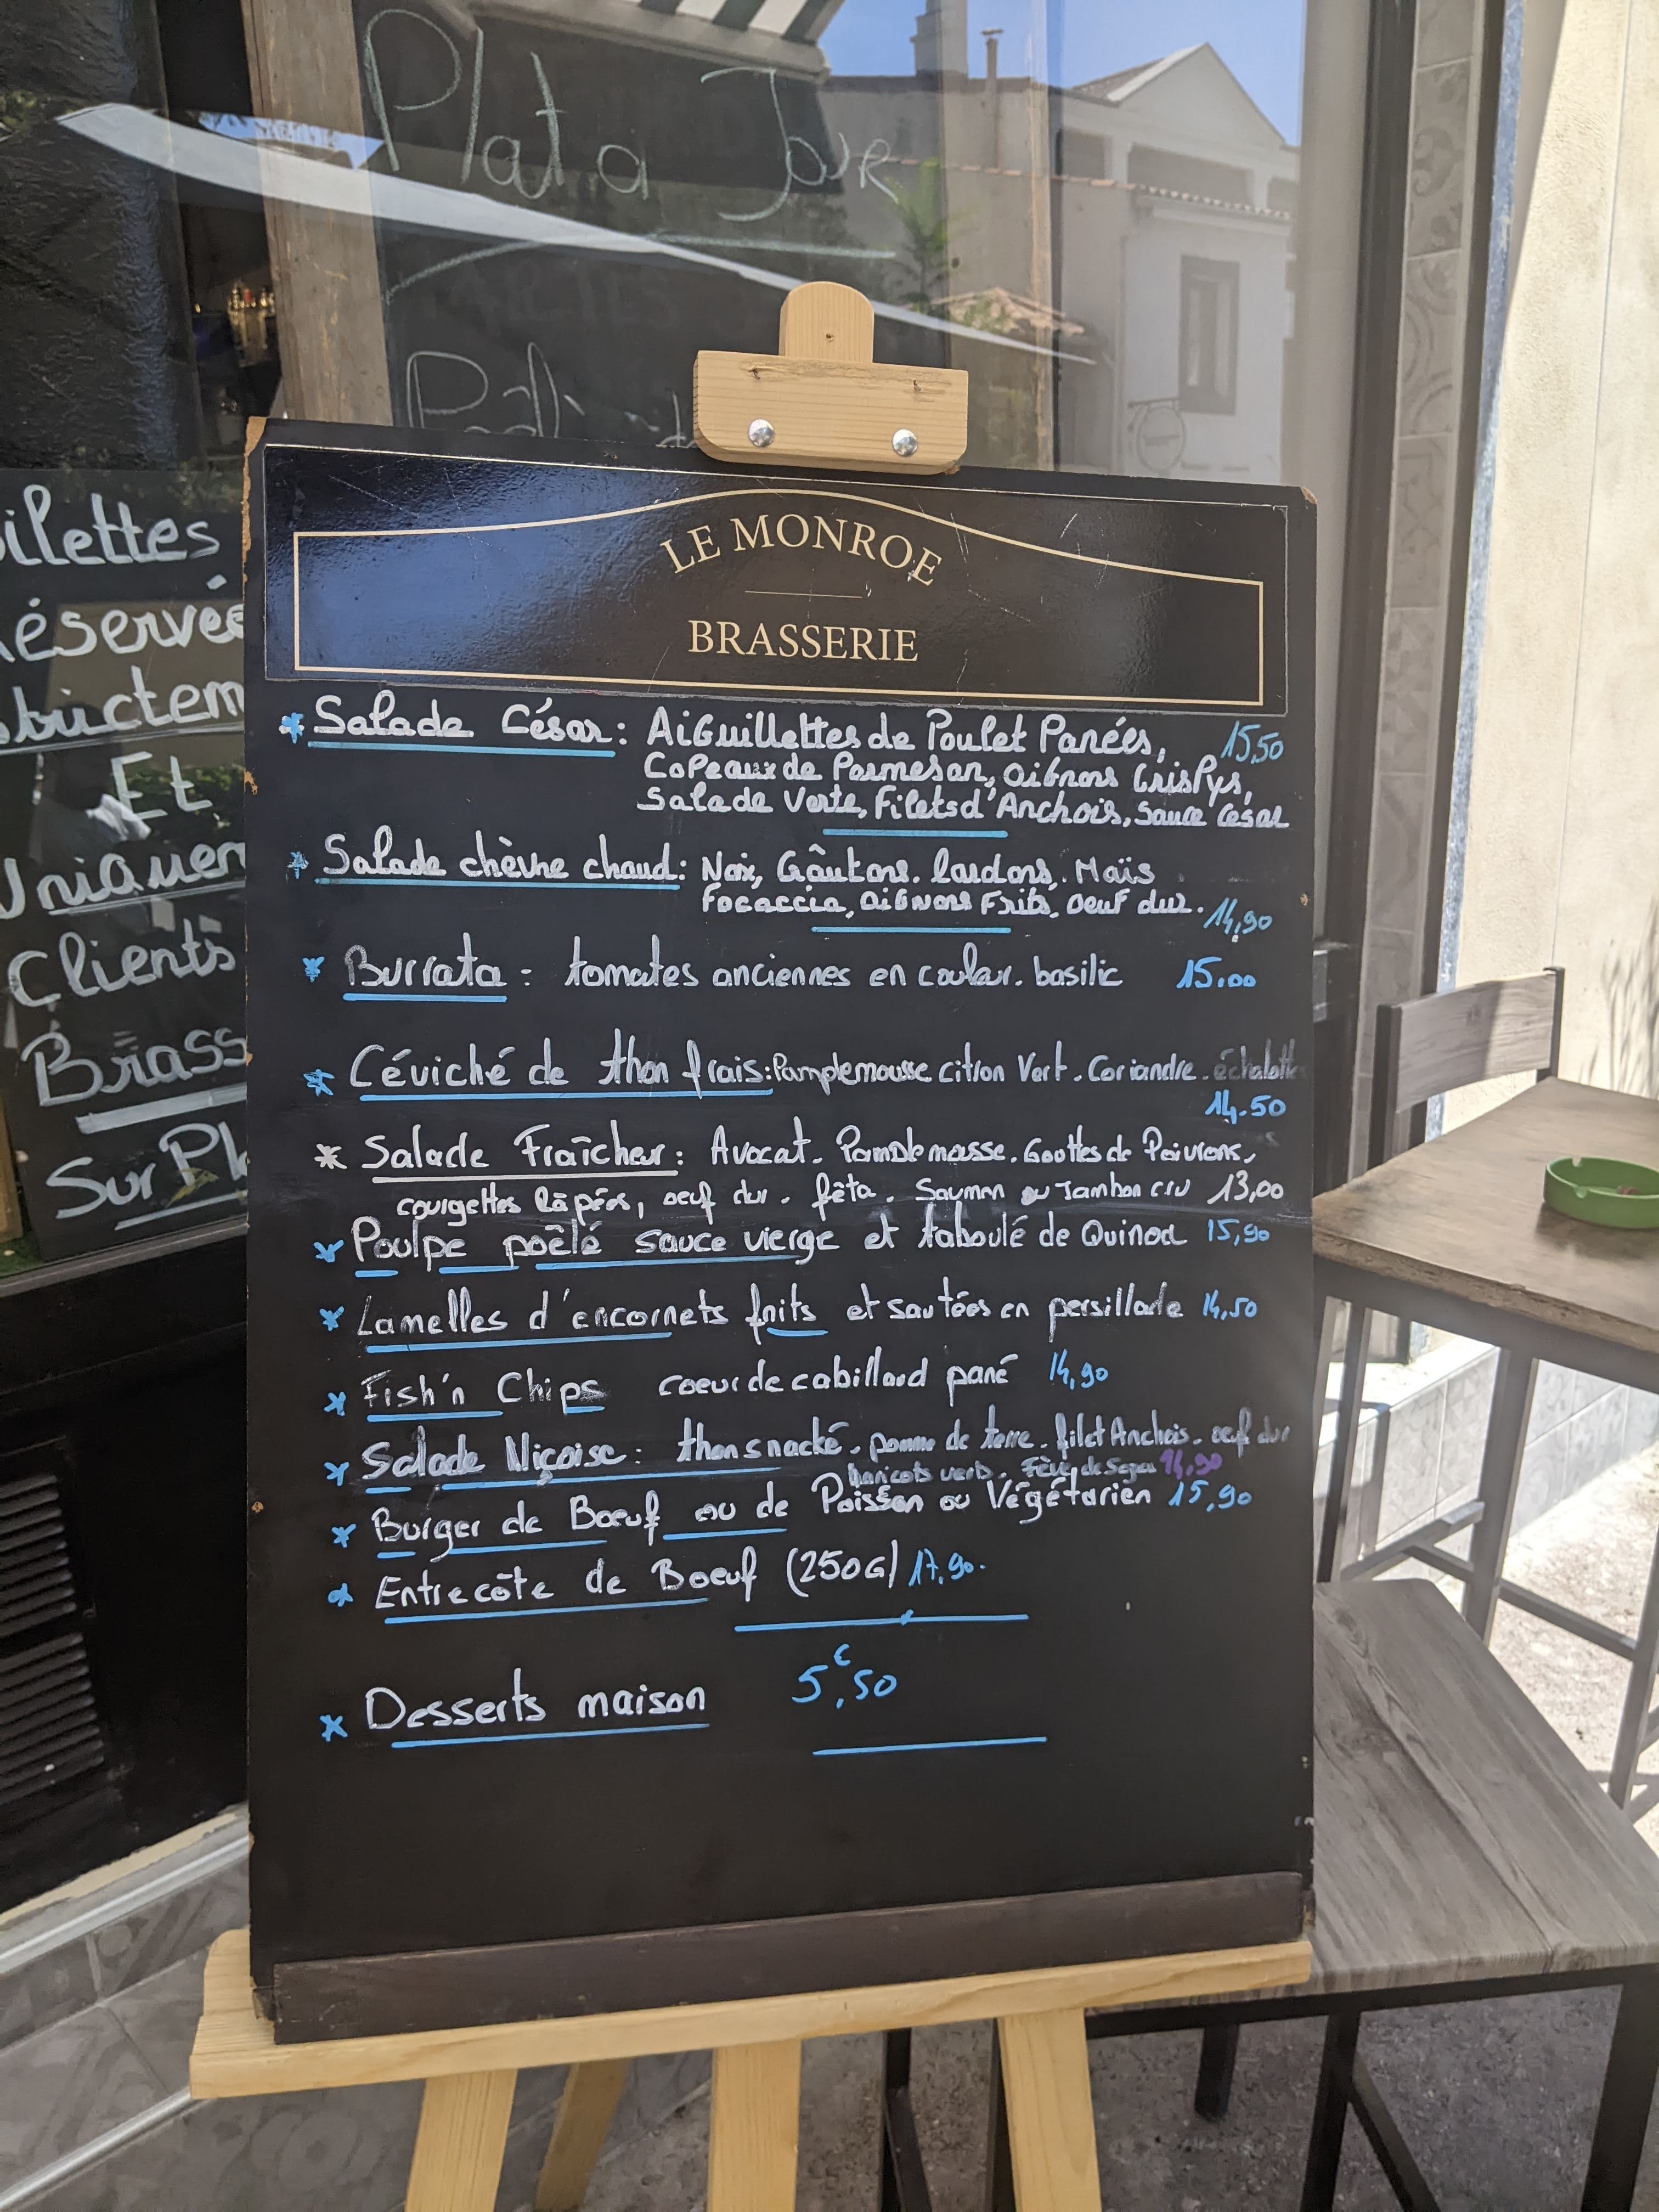 Plat du Jour
LE MONROE
BRASSERIE
ilettes
éservée
strictem
Et
Uniquem
Clients
Brass
Sur Pl
* Salade César : Aiguillettes de Poulet Panées, 15,50
Copeaux de Parmesan, oignons Crispys,
Salade Verte, Filets d'Anchois, Sauce César
* Salade chèvre chaud : Noix, Croûtons. lardons. Maïs
focaccia, oignons Frits, oeuf dur. 14,90
* Burrata : tomates anciennes en couleur. basilic 15.00
* Céviché de thon frais : Pamplemousse citron Vert. Coriandre. échalotte
14.50
* Salade Fraîcheur : Avocat. Pamplemousse. Gouttes de Poivrons,
courgettes rapées, oeuf dur. fêta. Saumon ou Jambon cru 13,00
* Poulpe poêlé sauce vierge et taboulé de Quinoa 15,90
* Lamelles d'encornets frits et sautées en persillade 14,50
* Fish'n Chips coeur de cabillaud pané 14,90
* Salade Niçoise : thon snacké. pomme de terre. filet Anchois. oeuf dur
haricots verts. Fève de 14,90
* Burger de Boeuf ou de Poisson ou Végétarien 15,90
* Entrecôte de Boeuf (250G) 17,90.
* Desserts maison 5€,50